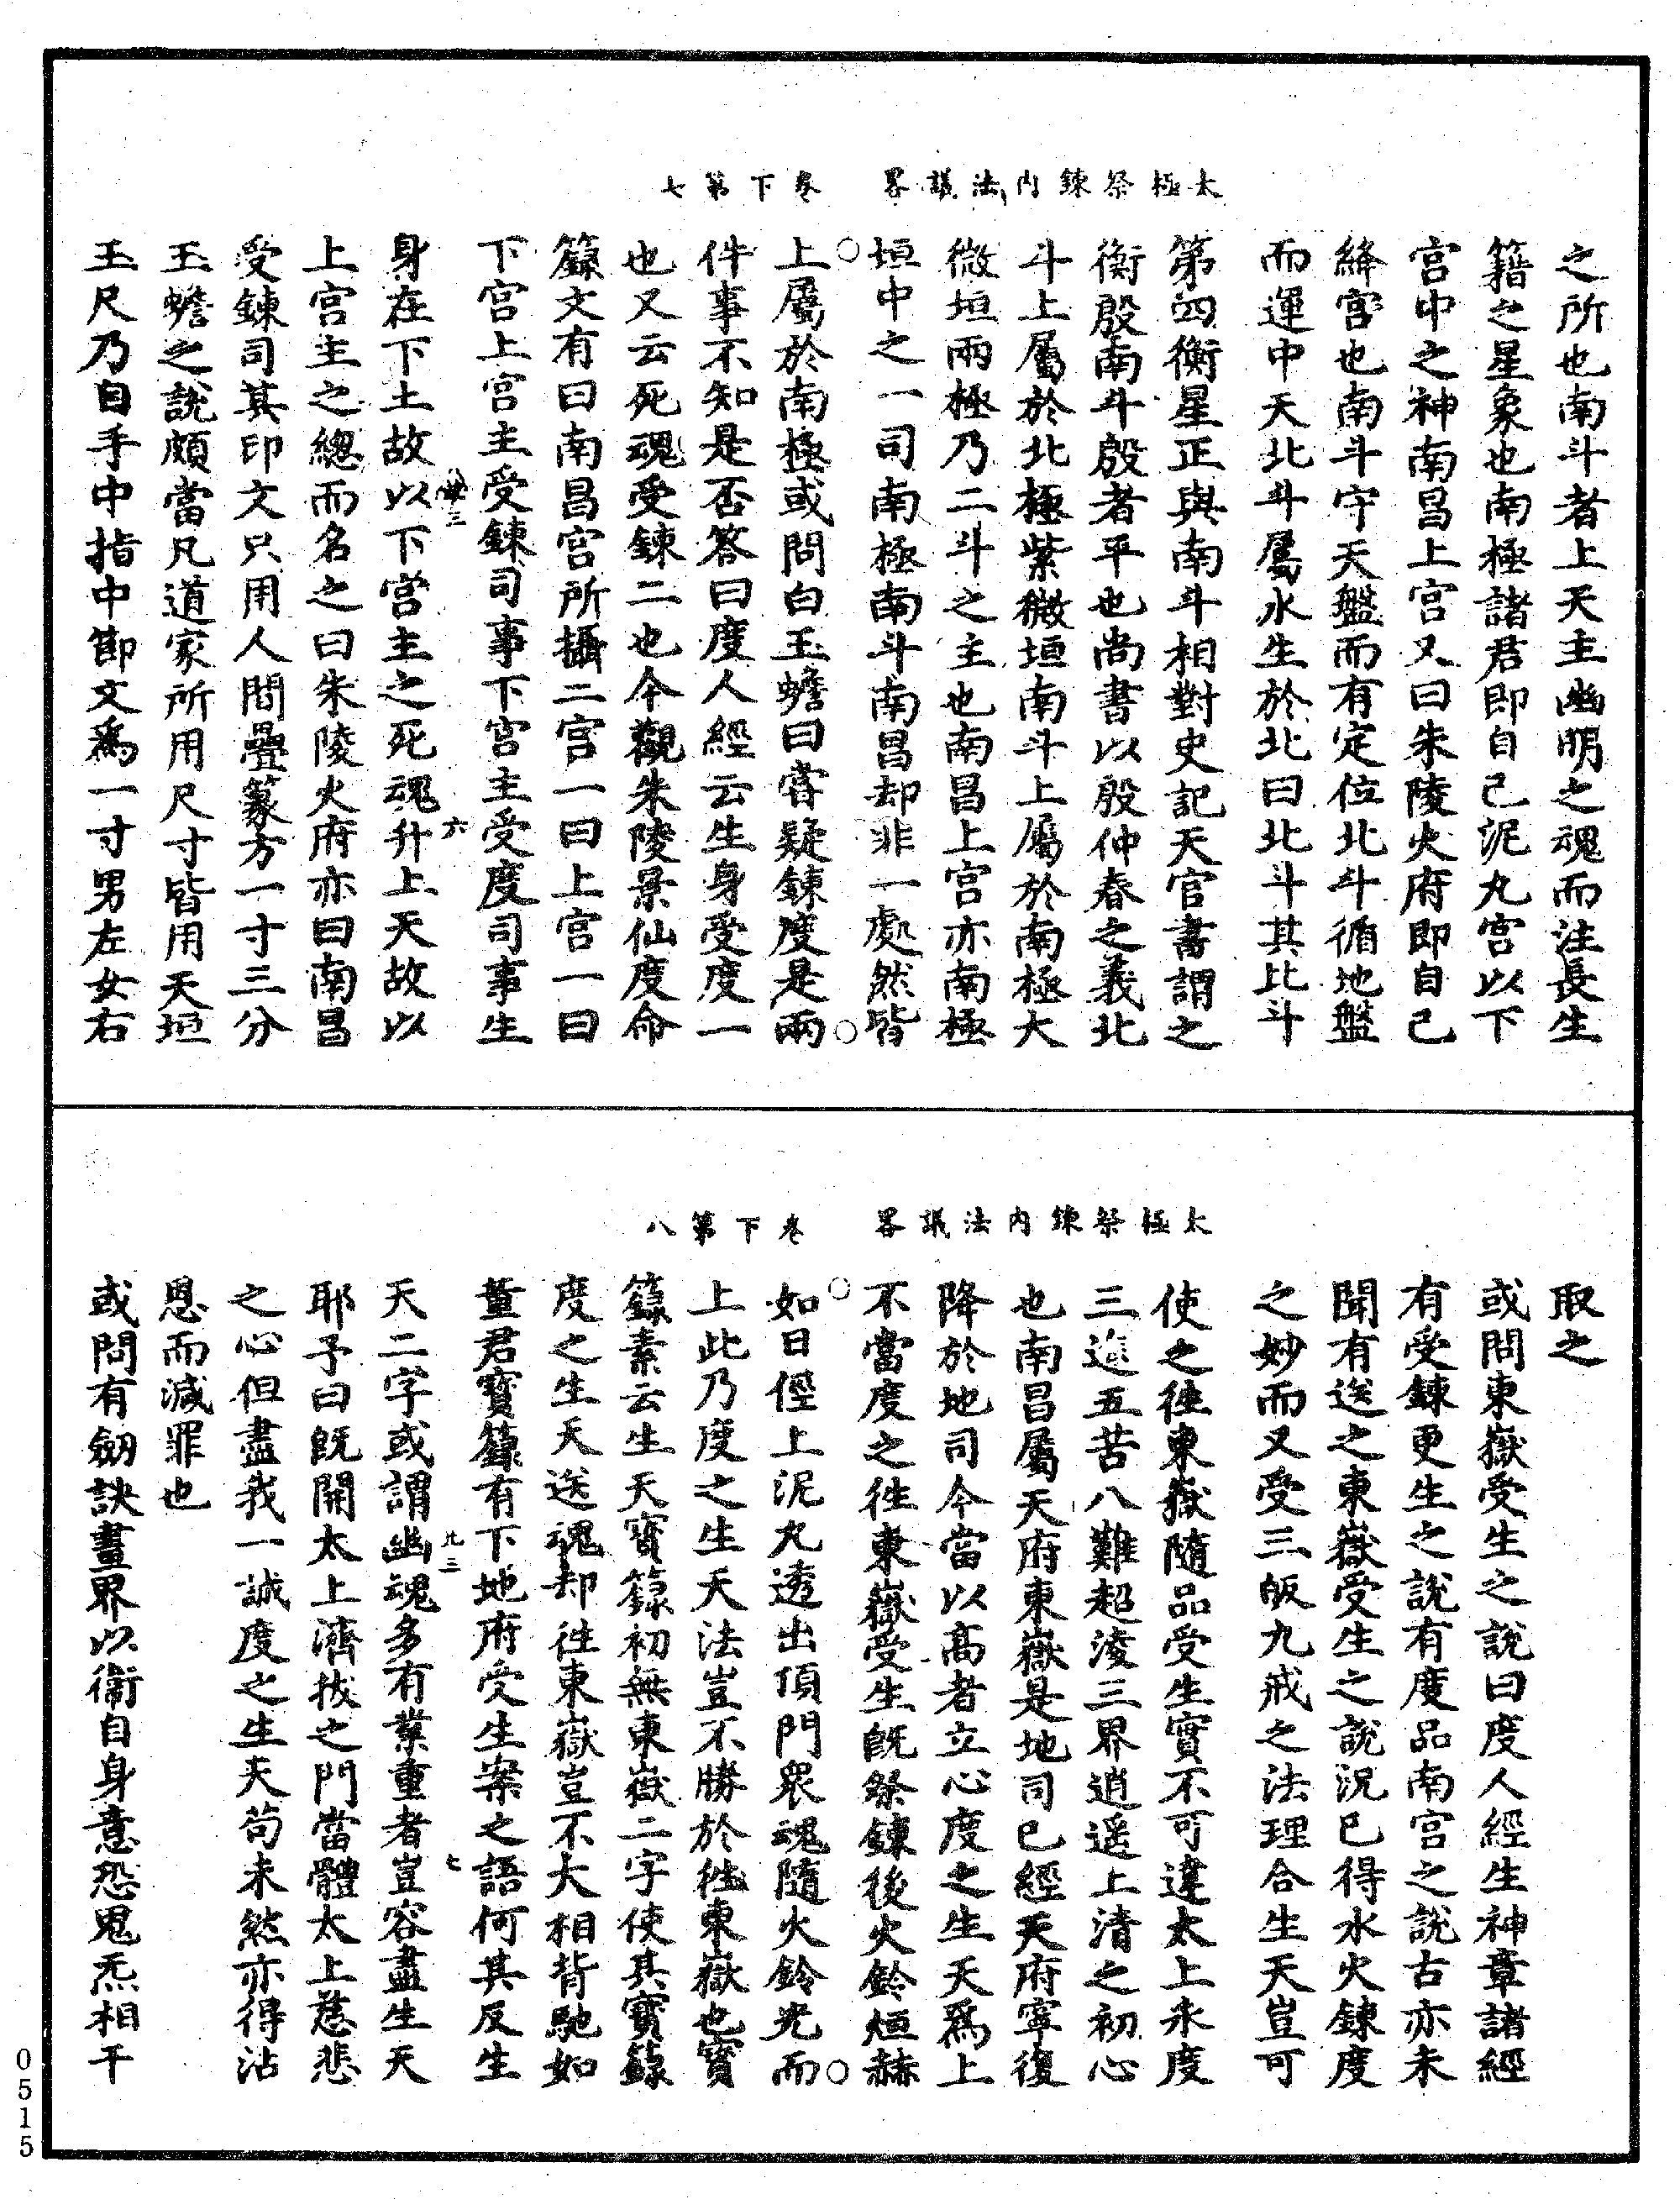 太極祭鍊內法議畧　卷下第七
之所也南斗者上天主幽明之魂而注長生
籍之星象也南極諸君即自己泥丸宮以下
宮中之神南昌上宮又曰朱陵火府即自己
絳宮也南斗守天盤而有定位北斗循地盤
而運中天北斗屬水生於北曰北斗其比斗
第四衡星正與南斗相對史記天官書謂之
衡殷南斗殷者平也尚書以殷仲春之義北
斗上屬於北極紫微垣南斗上屬於南極大
微垣兩極乃二斗之主也南昌上宮亦南極
垣中之一司南極南斗南昌却非一處然皆
上屬於南極或問白玉蟾曰嘗疑鍊度是兩
件事不知是否答曰度人經云生身受度一
也又云死魂受鍊二也今觀朱陵景仙度命
籙文有曰南昌宮所攝二宮一曰上宮一曰
下宮上宮主受鍊司事下宮主受度司事生
身在下土故以下宮主之死魂升上天故以
上宮主之總而名之曰朱陵火府亦曰南昌
受鍊司其印文只用人間疊篆方一寸三分
玉蟾之說頗當凡道家所用尺寸皆用天垣
玉尺乃自手中指中節文爲一寸男左女右
六
太極祭鍊內法議畧　卷下第八
取之
或問東嶽受生之說曰度人經生神章諸經
有受鍊更生之說有度品南宮之說古亦未
聞有送之東嶽受生之說況已得水火鍊度
之妙而又受三皈九戒之法理合生天豈可
使之往東嶽隨品受生實不可違太上永度
三途五苦八難超淩三界逍遥上清之初心
也南昌屬天府東嶽是地司已經天府寧復
降於地司今當以高者立心度之生天爲上
不當度之往東嶽受生旣祭鍊後火鈴烜赫
如日徑上泥丸透出頂門衆魂隨火鈴光而
上此乃度之生天法豈不勝於往東嶽也寶
籙素云生天寶籙初無東嶽二字使其寶籙
度之生天送魂却往東嶽豈不大相背馳如
董君寶籙有下地府受生案之語何其反生
天二字或謂幽魂多有業重者豈容盡生天
耶予曰旣開太上濟拔之門當體太上慈悲
之心但盡我一誠度之生天苟未然亦得沾
恩而減罪也
或問有劒訣畫界以衞自身意恐鬼炁相干
七
0515